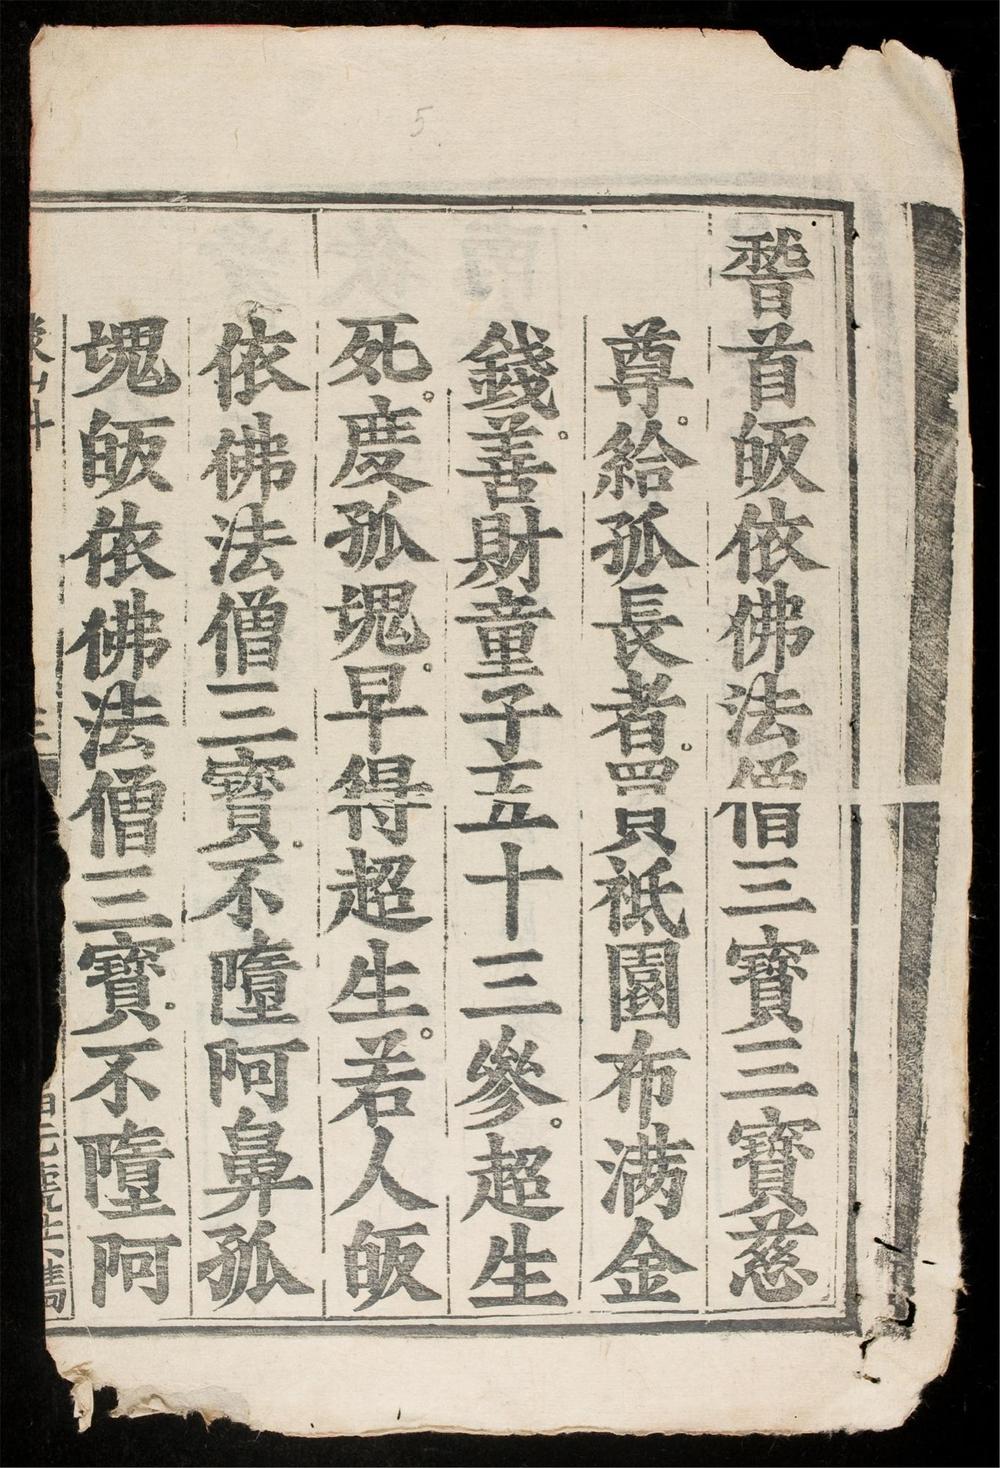 5
稽首皈依佛法僧三寶三寶慈
尊。給孤長者。買祇園布滿金
錢。善財童子五十三參。超生
死。度孤魂。早得超生。若人皈
依佛法僧三寶。不墮阿鼻孤
魂皈依佛法僧三寶。不墮阿